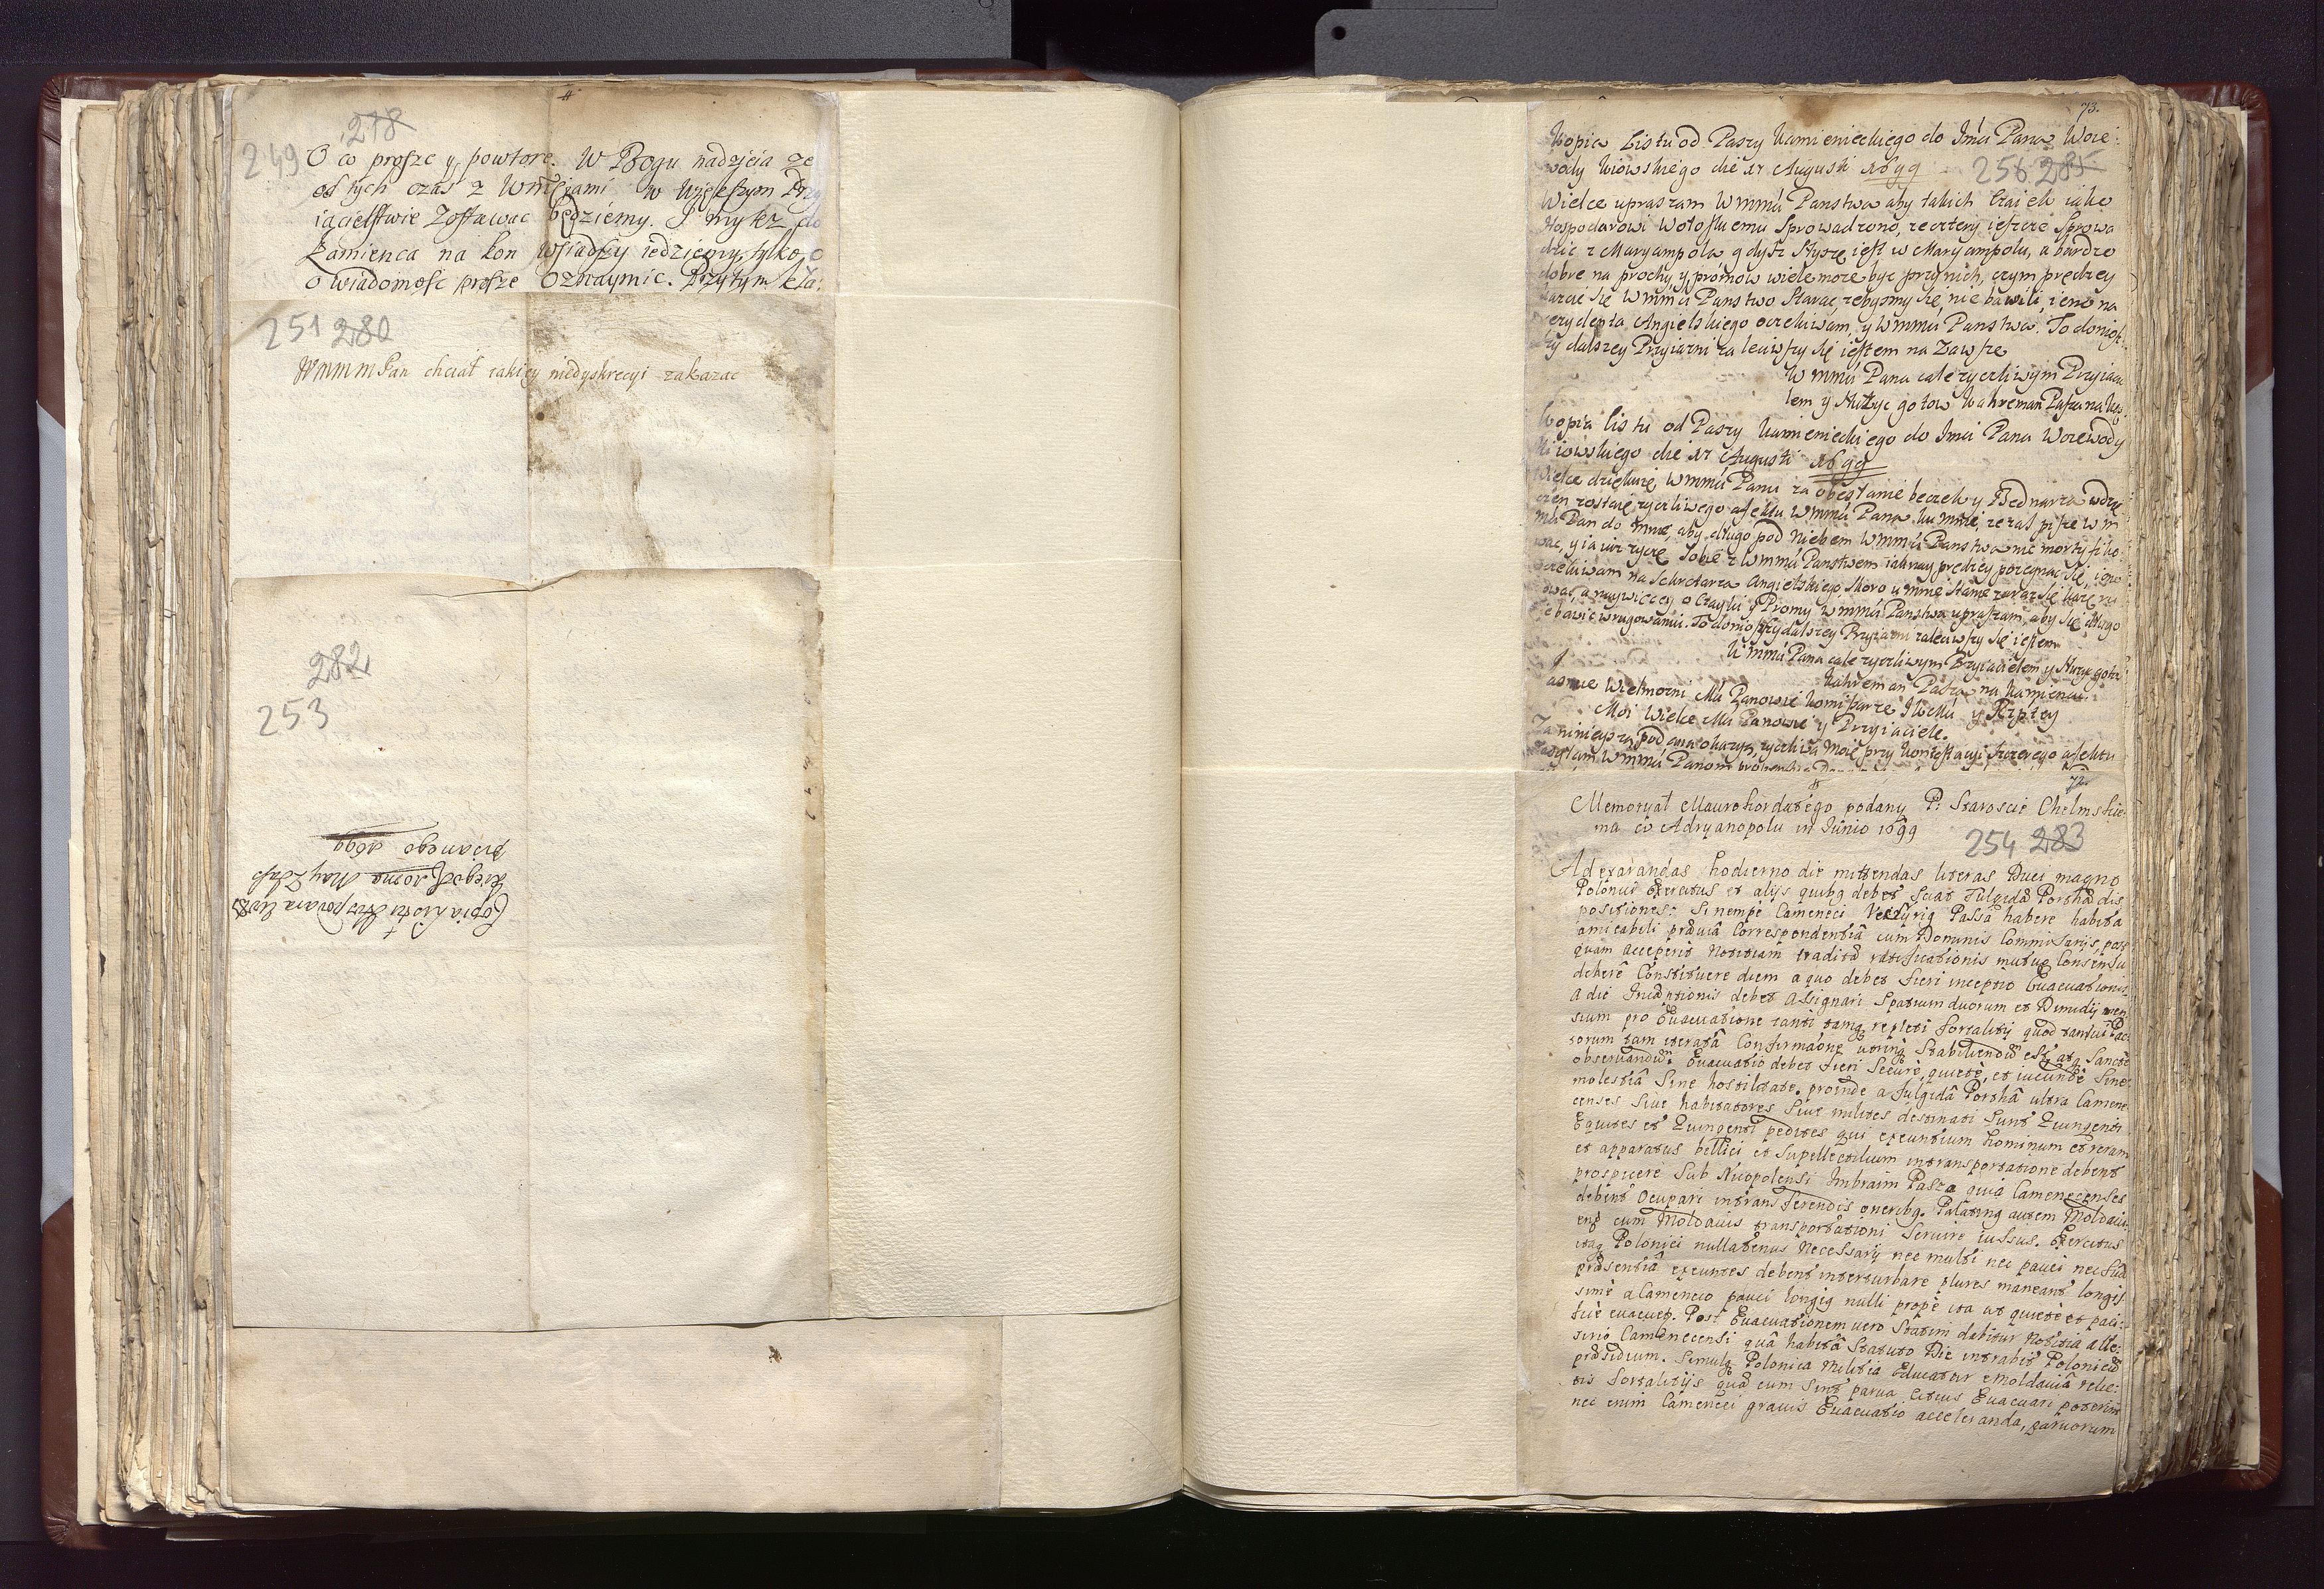 278
249 O co proszę y powtore. W Bogu nadzieia ze
od tych czas z Wmciami w Uzęłszym Przy
iacielstwie Zostawac będziemy. I my też do
Kamienca na kon wsiadszy iedziemy, tylko o
o wiadomosc prosze Oznaymic. Przytym
251 280
WmmmPan chciał takiey niedyskrecyi zakazac
282
253
Copia Listu Hospodara
May
pisanego 1699
73.
Kopia Listu od Paszy Kamienieckiego do Imci Pana Woie:
wody Kiowskiego die 17 Augusti 1699
256 285
Wielce upraszam Wmmci Panstwa aby takich Czaiek iako
Hospodarowi Wołoskiemu Sprowadzono, ze cztery ieszcze Sprowa
dzic z Maryampola gdysz Słyszę iest w Maryampolu, a bardzo
dobre na prochy y promow wiele moze byc przy nich, czym prędzey
Wmmci Panstwo Starac, zebysmy się nie bawili, ieno na
Rezydenta Angielskiego oczekiwam, y Wmmci Panstwa. To doniosł
szy dalszey Przyiazni zaleciwszy się iestem na Zawsze
Wmmci Pana cale zyczliwym Przyiacie
lem y Służyc gotow Kahreman Pasza na
Kopia listu od Paszy Kamienieckiego do Imci Pana Woiewody
Kiiowskiego die 17 Augusti 1699
Wielce dziękuię Wmmci Panu za obesłanie beczek y Bednarza wdzię
czen zostaię zyczliwego afektu Wmmci Pana ku mnie, ze zas pisze Wm
mci Pan do mnie, aby długo pod Niebem Wmmci Panstwa nie mortyfiko
wac, y ia iuz zyczę Sobie z Wmmci Panstwem iaknayprędzey pozegnac się, ieno
oczekiwam na Sekretarza Angielskiego, skoro u mnie stanie zaraz się każę ru
owac, a naywięcey o Czayki y Promy Wmmci Panstwa upraszam, aby się długo
nie bawic w rugowaniu. To doniosszy dalszey Przyiazni zaleciwszy się iestem
Wmmci Pana cale zyczliwym Przyiacielem y Służyc gotow
Kahreman Pasza na Kamiencu
Jasnie Wielmozni Mci Panowie Komissarze I K Mci y Rzptey
Moi Wielce Mci Panowie y Przyiaciele.
Za ninieyszą podaną okazyą, zyczliwą Moię przy kontestacyi szczerego afektu
zasyłam Wmmci Panom
72.
Memoryał Maurokordatego podany P: Staroscie Chelmskie:
mu w Adryanopolu in Iunio 1699
254 283
Ad exarandas hodierno die mittendas literas Duci magno
Polonici Exercitus et alijs quibq debet sciat Fulgida Portha dis
positiones: Si nempe Cameneci Vezyrig Passa habere habita
amicabili prævia Correspondentiâ cum Dominis Commissarijs, post
quam acceperit Notitiam tradita ratificationis mutuo Consensu
debere Constituere diem a quo debet fieri inceptio Evacuationis
A die Inceptionis debet Assignari Spatium duorum et Dimidij men
sium pro Evacuatione tanti tamq repleti fortalitij quod tantui Pac
torum tam iteratâ Confirmaone utrinq Stabiliendũ est atq Sanctè
observandũ. Evacuatio debet fieri Secure, quietè, et iucundè Sine
molestiâ Sine hostilitate. proinde a fulgidâ Porthâ ultra Camene
censes Sive habitatores Sive milites destinati Sunt Quingenti
Equites et Quingenti pedites qui exeuntium hominum et rerum
et apparatus bellici et Supellectilium in transportatione debent
prospicere Sub Nicopolensi Imbraim Pasza quia Camenecenses
debent Ocupari in transferendis oneribq. Palatinq autem Moldavi:
enq cum Moldavis transportationi Servire iussus. Exercitus
itaq Polonici nullatenus Necessarij nec multi nec pauci nec suâ
præsentiâ exeuntes debent interturbare plures maneant longis
sime a Camenecio pauci longiq nulli prope ita ut quietè et paci
ficè evacuet. Post Evacuationem vero Statim dabitur Notitia alte:
Camenecensi quâ habitâ Statuto Die intrabit Polonicũ
præsidium. Simulq Polonica Militia Educatur e Moldaviâ relic:
tis fortalitijs quæ cum Sint parva Citius Evacuari poterint
nec enim Camenecei gravis Evacuatio acceleranda, parvorum